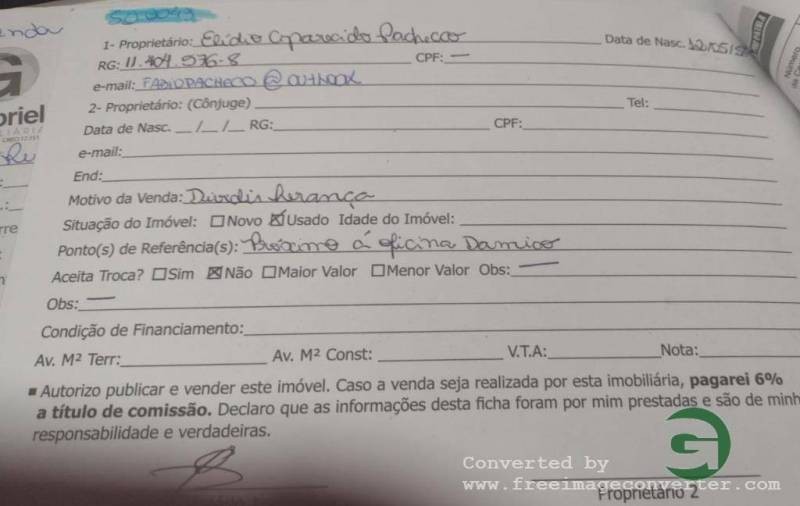 enda
SO 0049
1- Proprietário: Elidio Aparecido Pacheco Data de Nasc. 12/05/5
RG: 11.404.576-8 CPF: —
e-mail: FABIOPACHECO@OUTLOOK
2- Proprietário: (Cônjuge) Tel:
Data de Nasc. __/__/__ RG: CPF:
e-mail:
End:
Motivo da Venda: Dividir herança
Situação do Imóvel: ☐Novo ☒Usado Idade do Imóvel:
Ponto(s) de Referência(s): Próximo á oficina Damico
Aceita Troca? ☐Sim ☒Não ☐Maior Valor ☐Menor Valor Obs: —
Obs: —
Condição de Financiamento:
Av. M² Terr: Av. M² Const: V.T.A: Nota:
▪ Autorizo publicar e vender este imóvel. Caso a venda seja realizada por esta imobiliária, pagarei 6%
a título de comissão. Declaro que as informações desta ficha foram por mim prestadas e são de minh
responsabilidade e verdadeiras.
Converted by
www.freeimageconverter.com
Proprietário 2